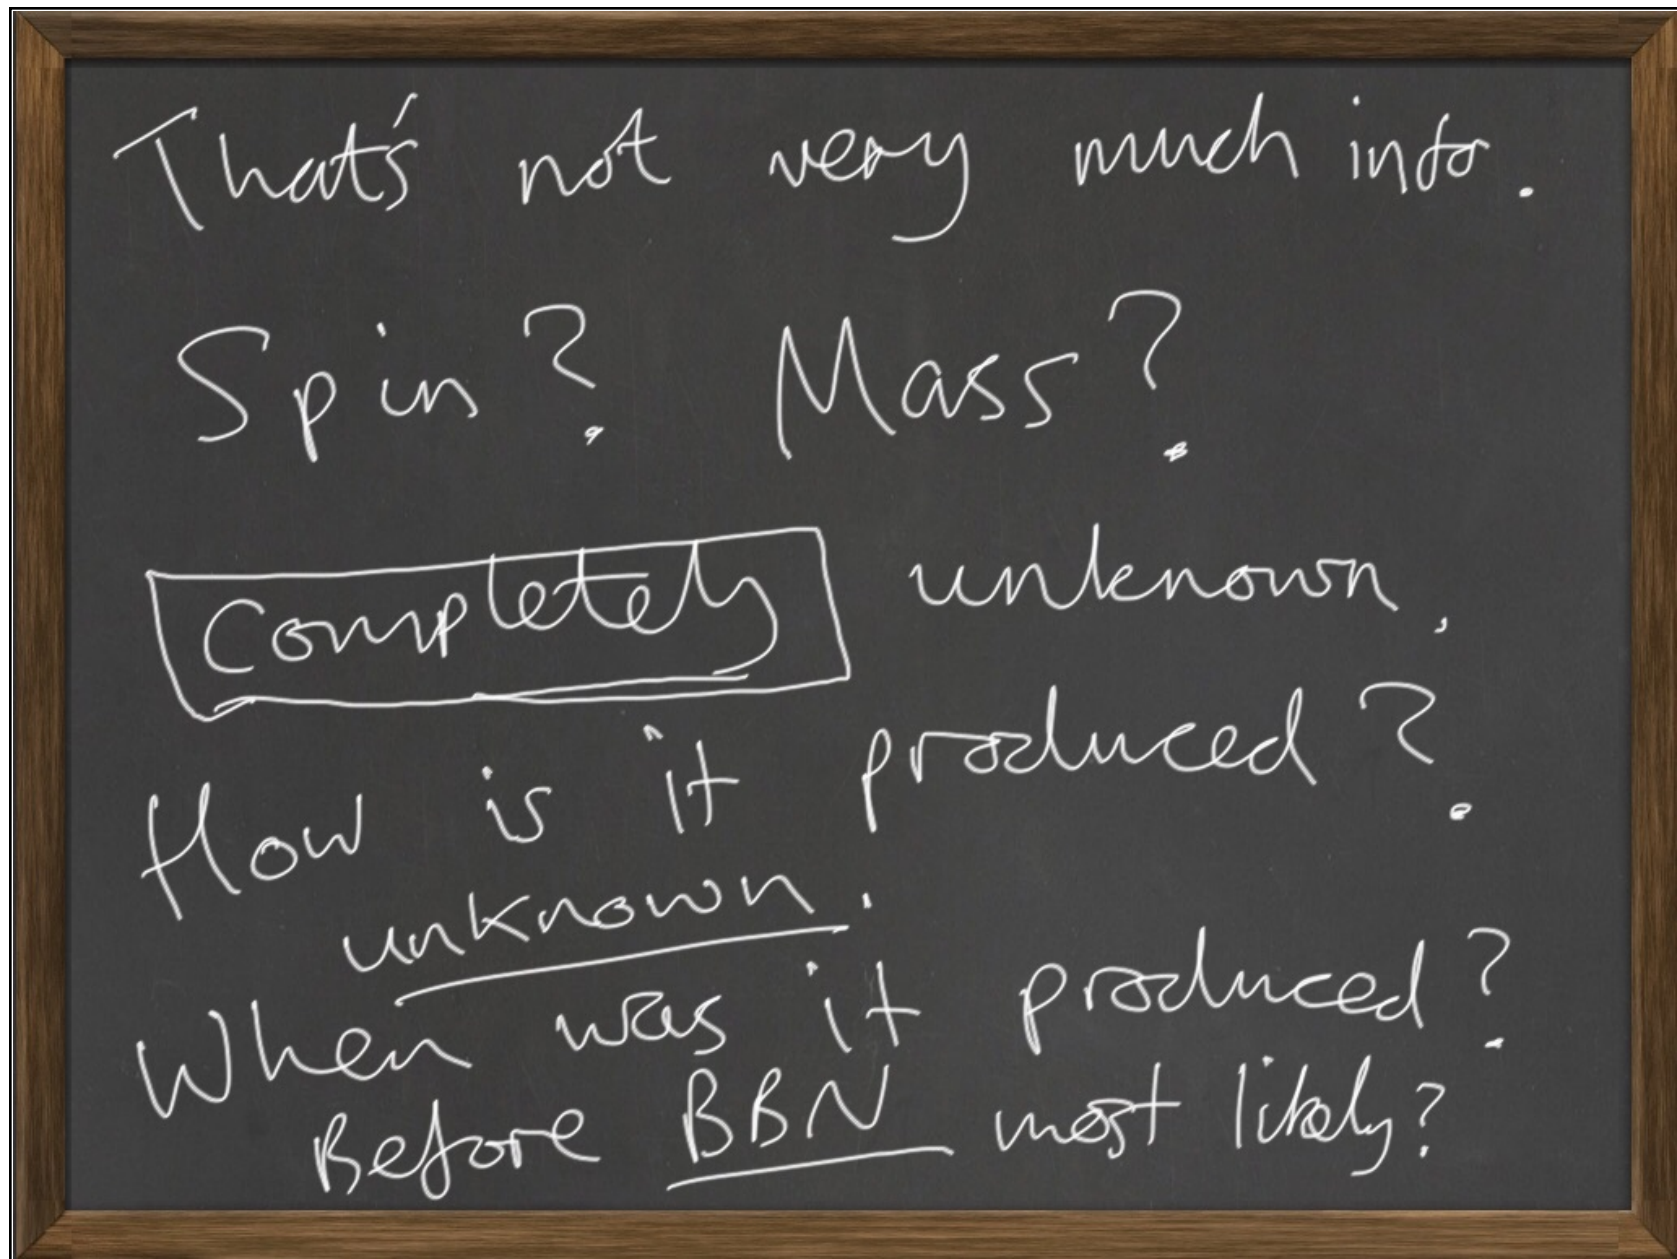 That's not very much info.
Spin? Mass?
Completely unknown.
How is it produced?
unknown.
When was it produced?
Before BBN most likely?